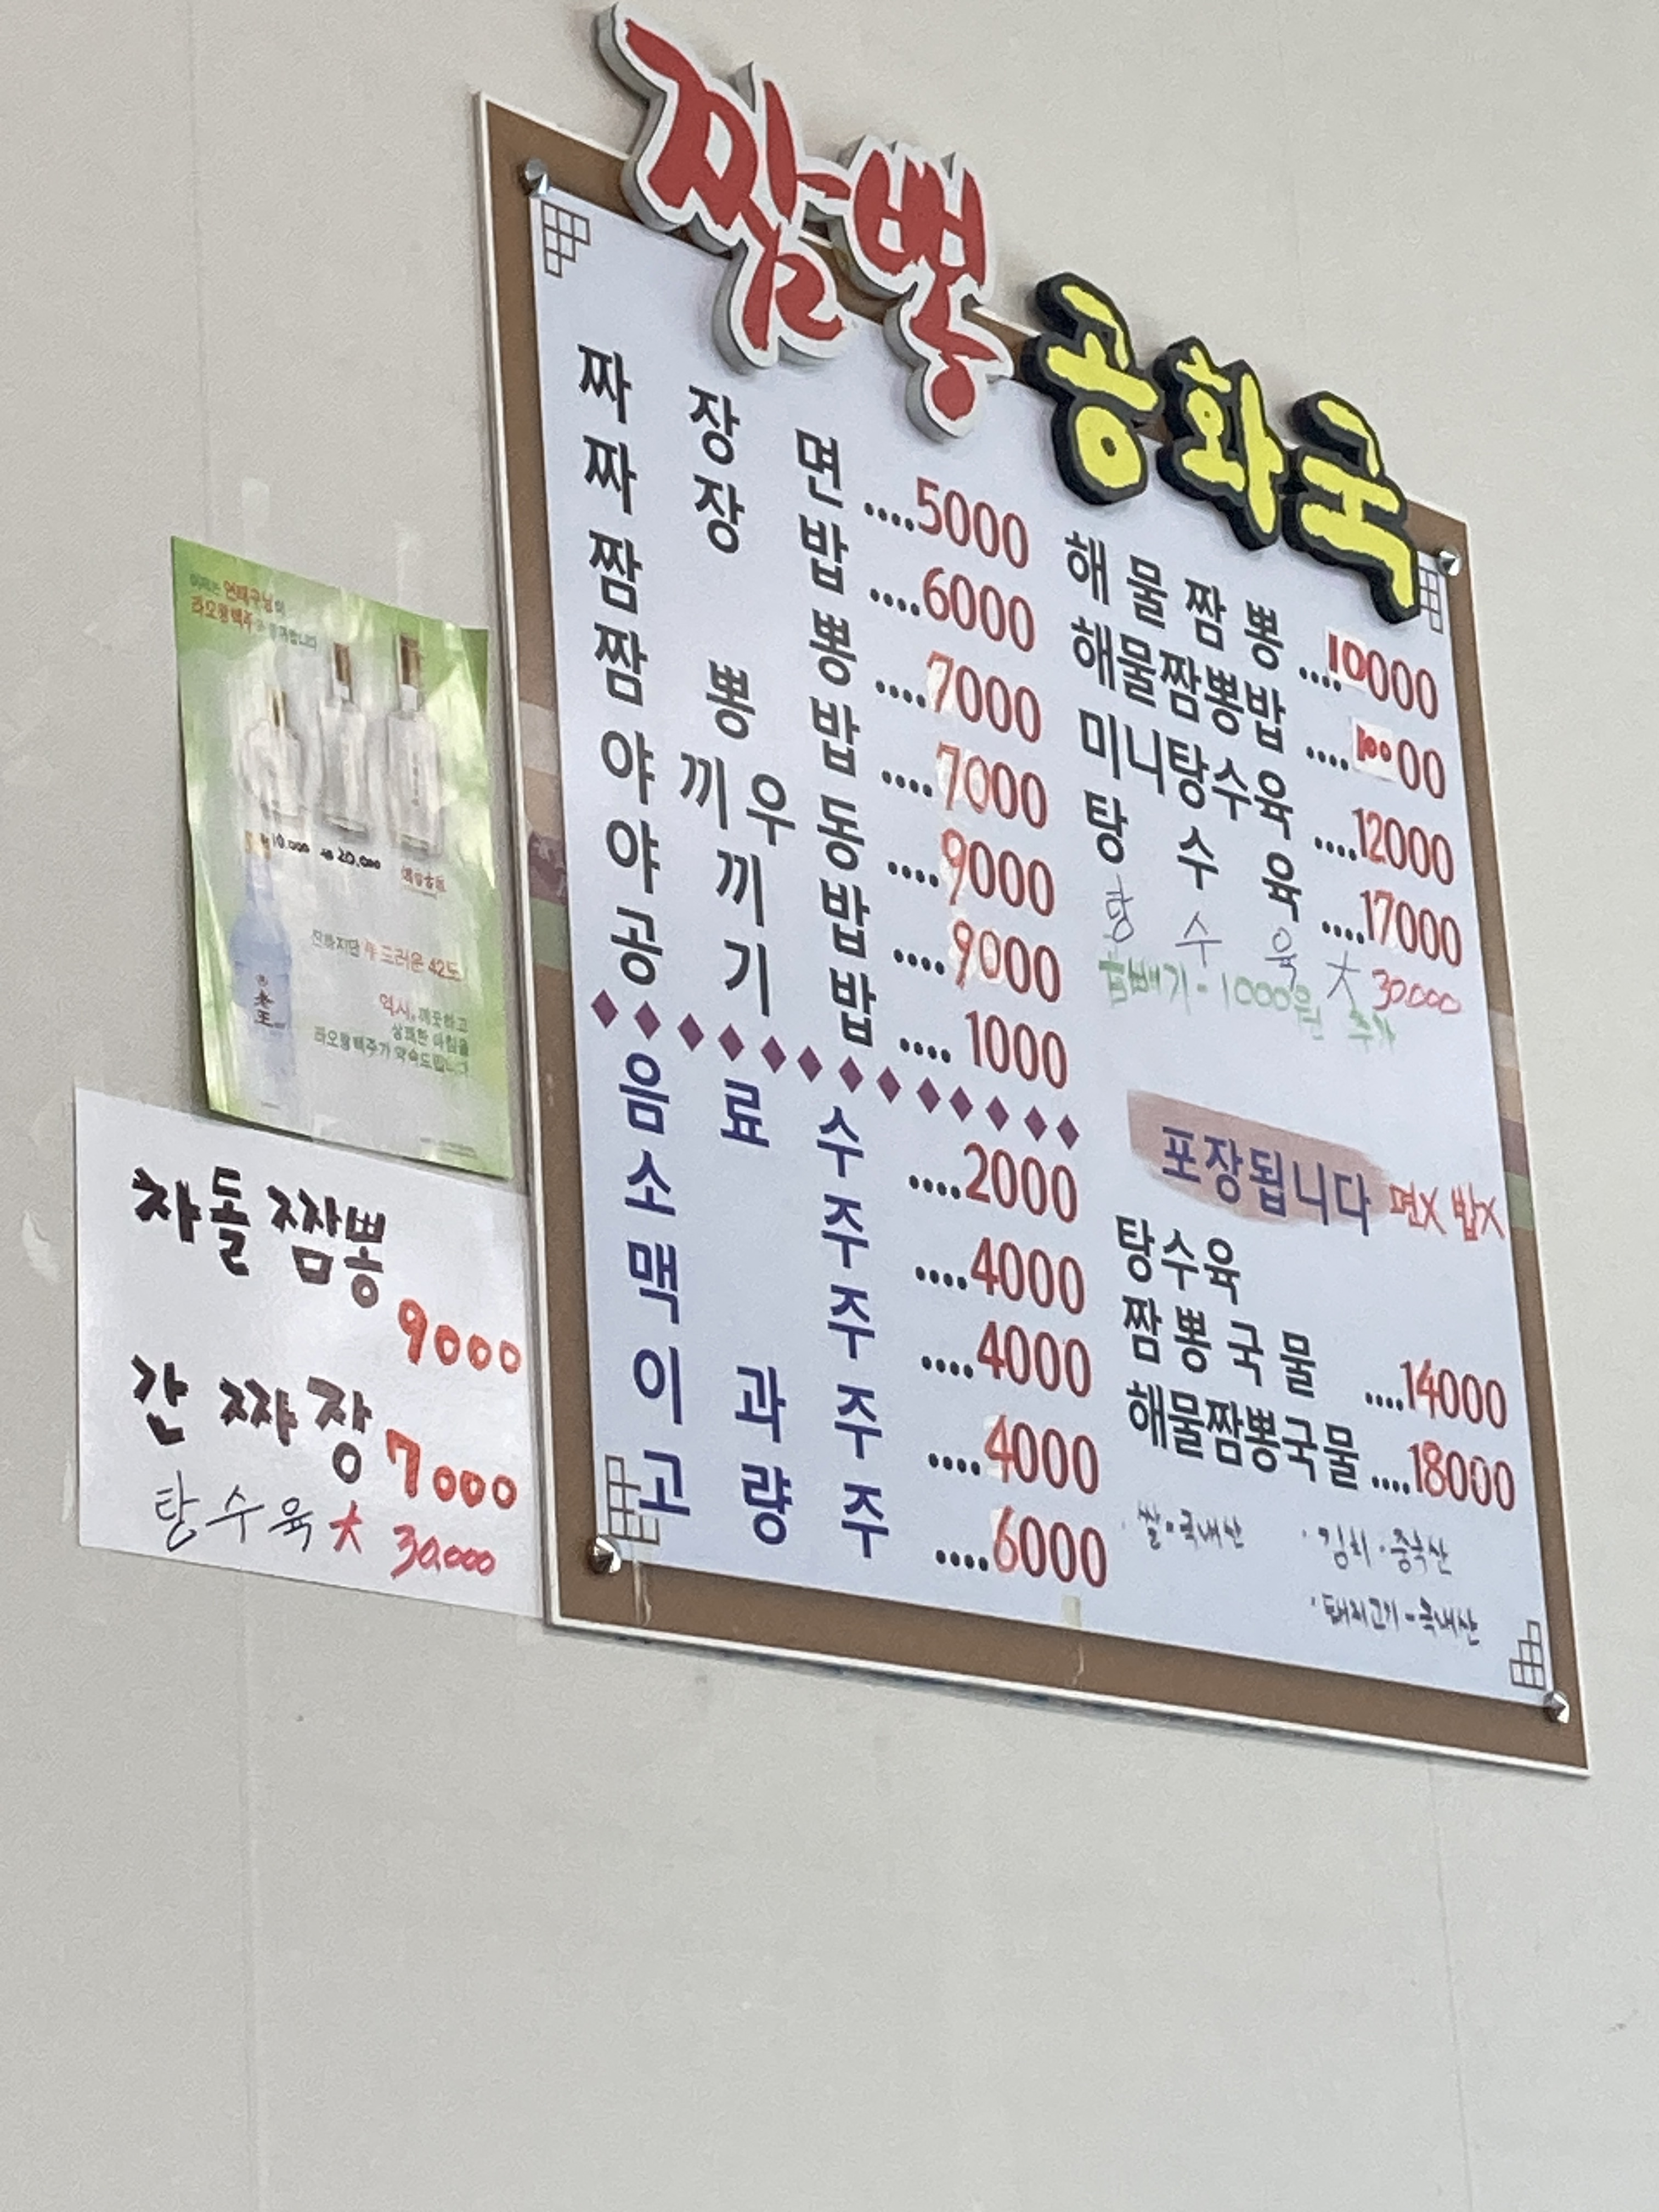 짬뽕 공화국
짜장면 ....5000
짜장밥 ....6000
짬뽕 ....7000
짬뽕밥 ....7000
야끼우동 ....9000
야끼밥 ....9000
공기밥 .... 1000
음료수 ....2000
소주 ....4000
맥주 ....4000
이과주 ....4000
고량주 ....6000
해물짬뽕 ....10000
해물짬뽕밥 ....10000
미니탕수육 ....12000
탕수육 ....17000
탕수육 大 30,000
곱빼기 - 1000원 추가
포장됩니다 면X 밥X
탕수육
짬뽕국물 ....14000
해물짬뽕국물 ....18000
· 쌀 - 국내산 · 김치 · 중국산
· 돼지고기 - 국내산
10,000 20,000
진하지만 부드러운 42도
역시, 깨끗하고
상쾌한 아침을
라오왕백주가 약속드립니다
老王
차돌짬뽕
9000
간짜장 7000
탕수육 大 30,000